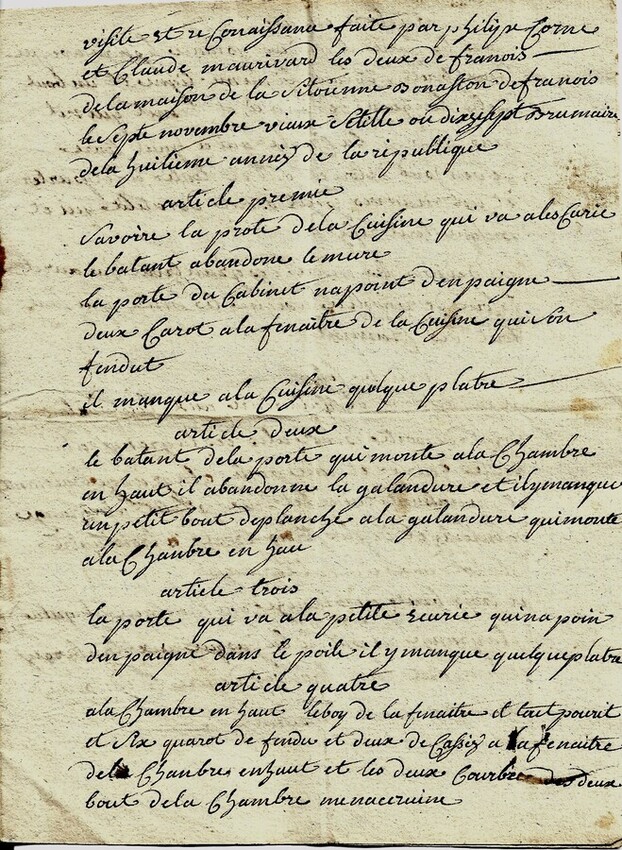 visite et reConaisance faite par philipe Corne
et Claude maurivard les deux de franois
de la maison de la Sitoienne Bonaston de franois
le Sept novembre viaux Stille ou dixsept Brumaire
de la huitieme anney de la republique
article premie
Savoire la prote de la Cuisine qui va a les Curie
le batant abandone le mure
la porte du Cabinet napoint denpaigne
deux Carot a la finaitre de la Cuisine qui son
fendut
il manque a la Cuisine quelque platre
article deux
le batant de la porte qui monte a la Chambre
en haut il abandonne la galandure et il y manque
un petit bout de planche a la galandure qui monte
a la Chanbre en hau
article trois
la porte qui va a la petite Ecurie qui na poin
denpaigne dans le poile il y manque quelque platre
article quatre
a la Chambre en haut le boy de la finaitre et tait pourit
et Six quarot de fendu et deux de Cassey a la fenaitre
de la Chanbre enhaut et les deux Courbre des deux
bout de la Chambre menaceruine